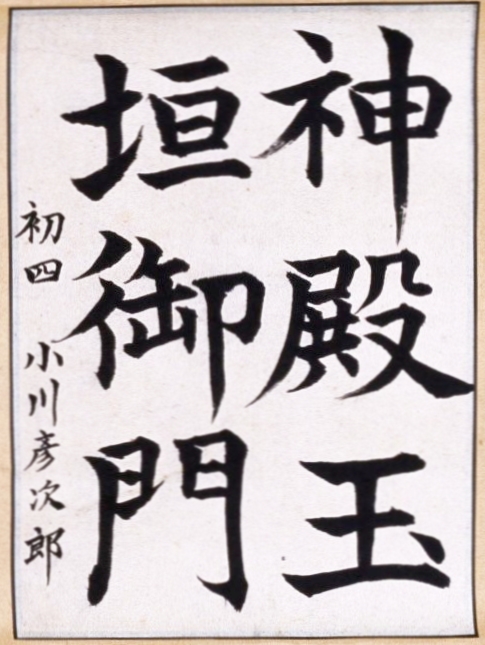 神殿玉
垣御門
初四 小川彦次郎